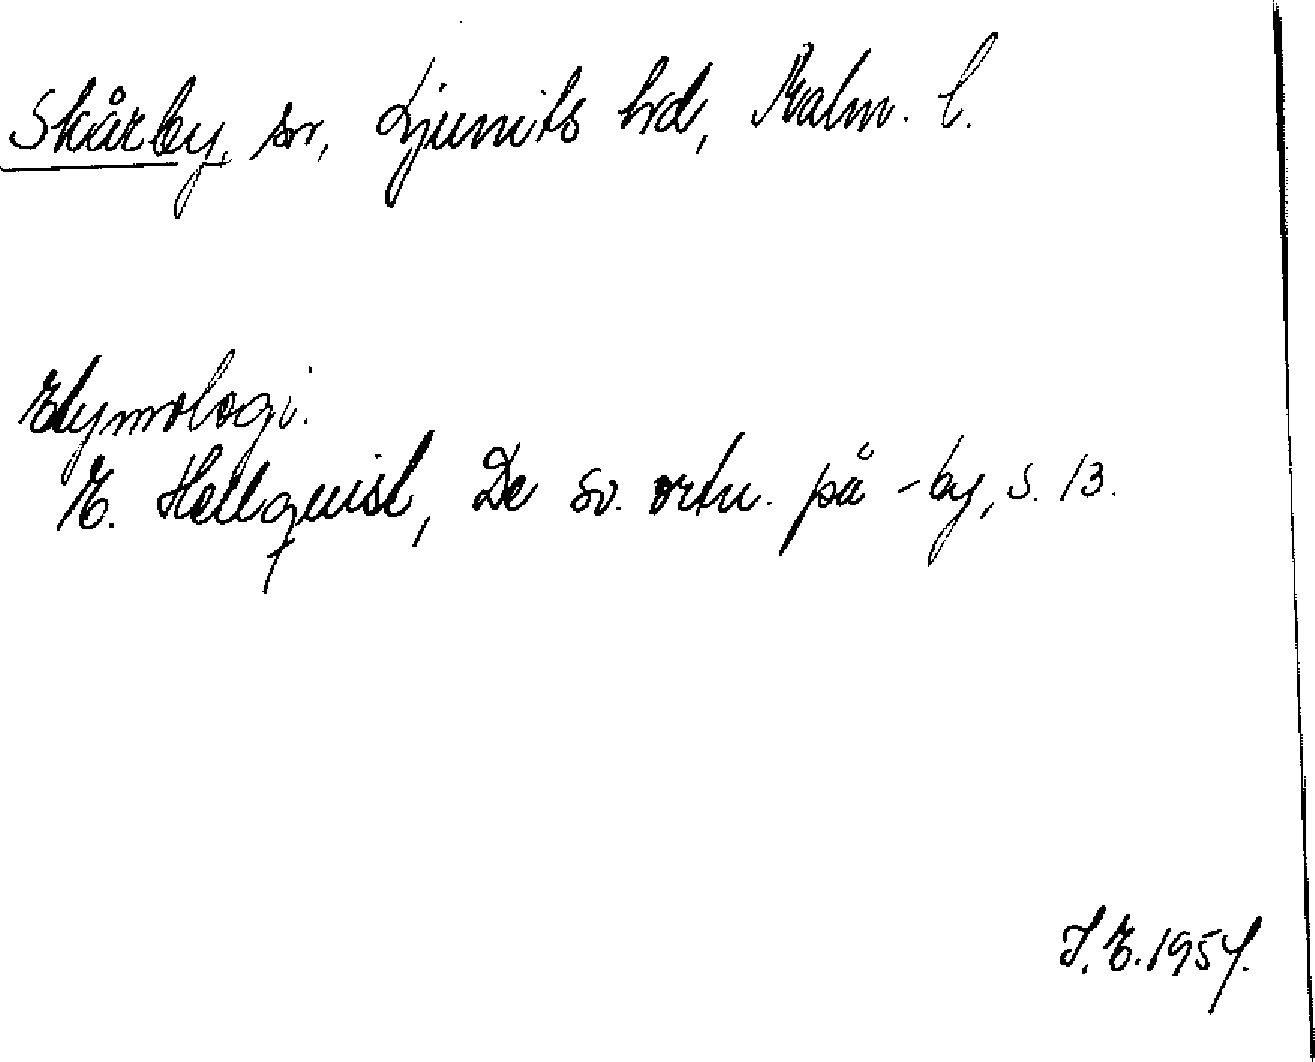 Skårby, sn, Ljunits hrd, Malm. l.
Etymologi.
E. Hellquist, De sv. ortn. på -by, s. 13.
I.E. 1954.